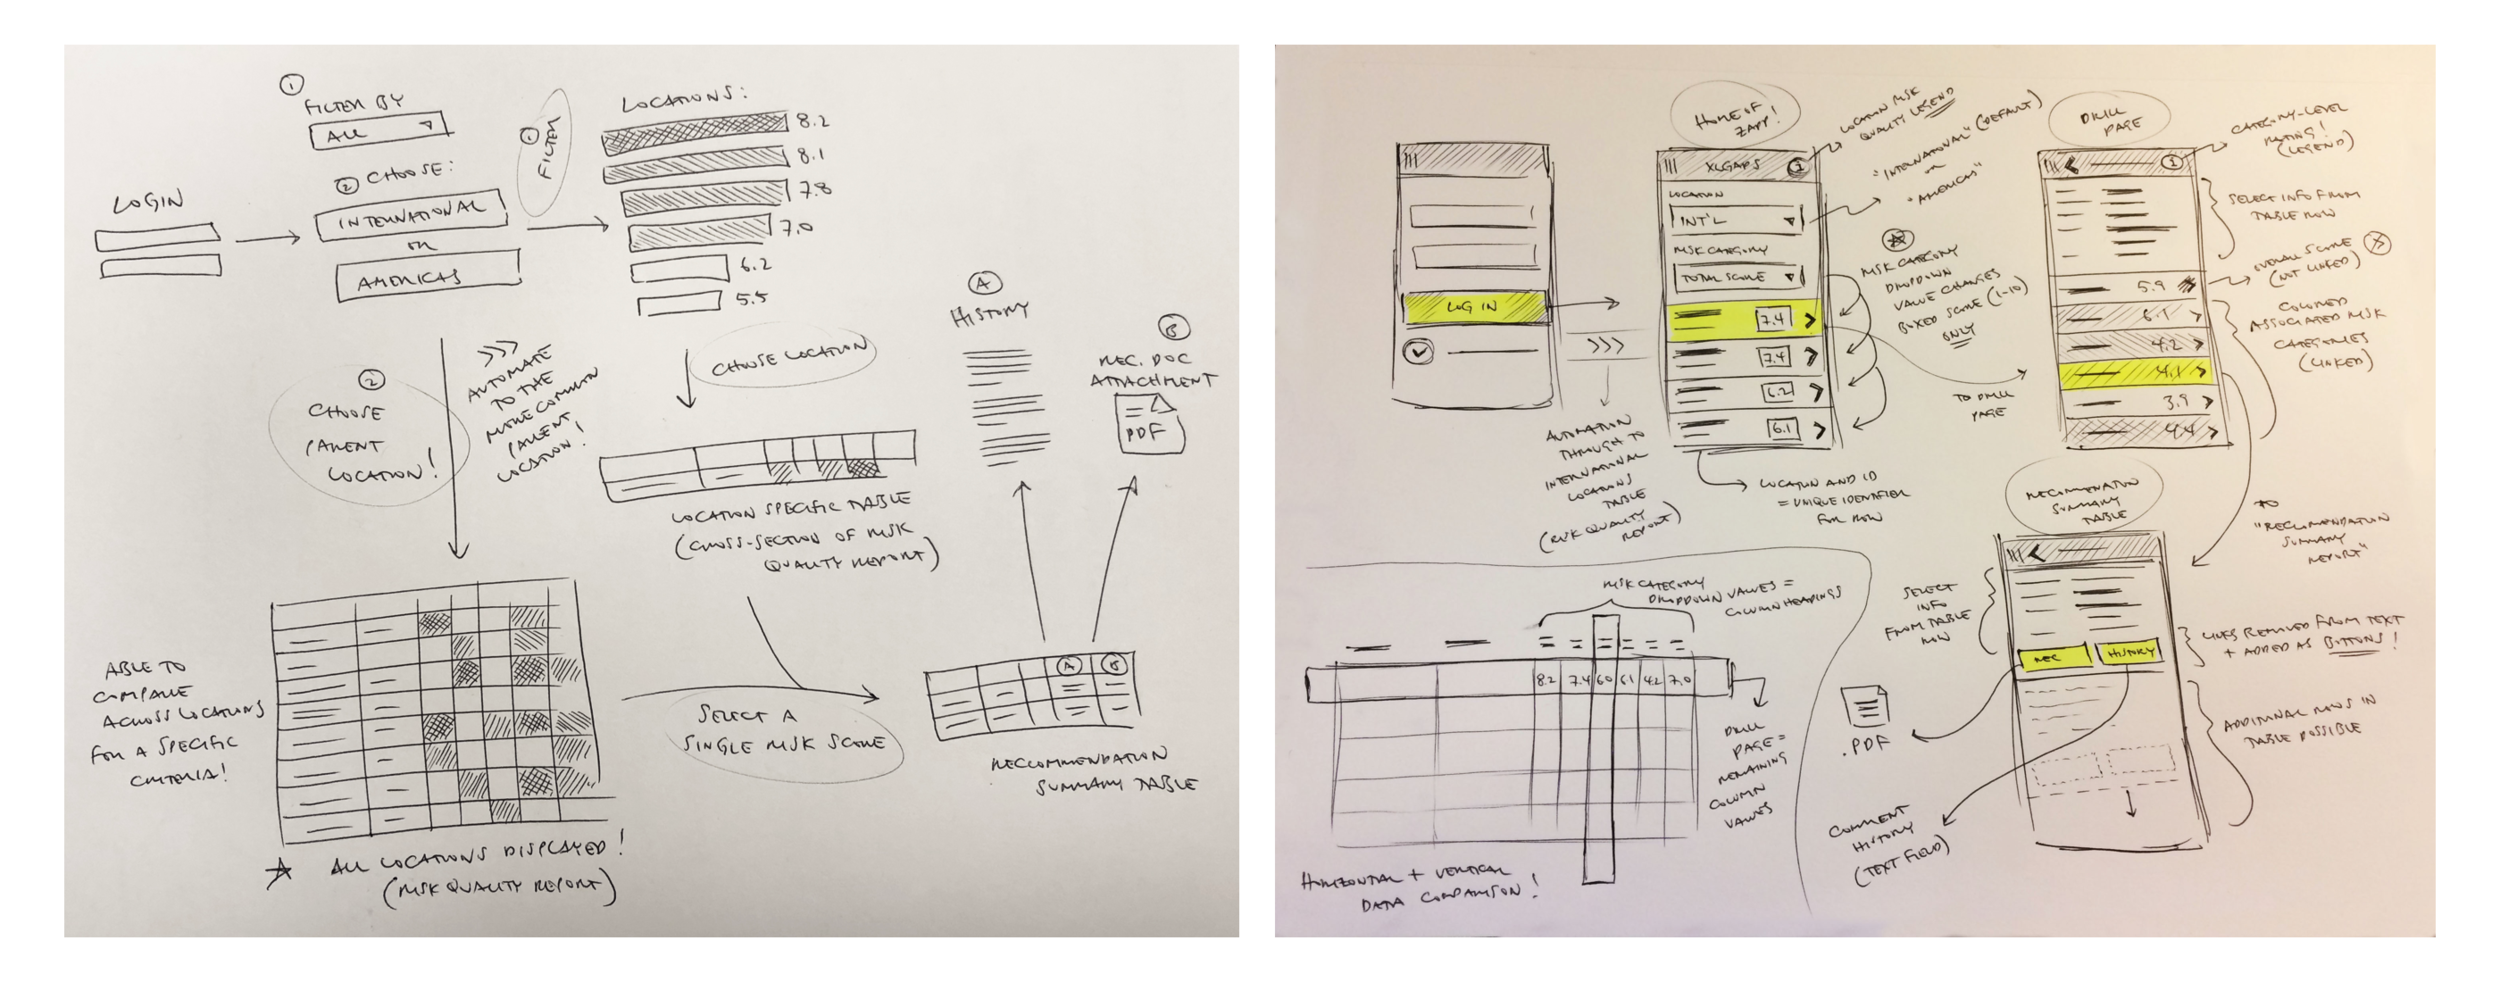 ①
FILTER BY
ALL
② CHOOSE:
INTERNATIONAL
OR
AMERICAS
LOGIN
① FILTER
LOCATIONS:
8.2
8.1
7.8
7.0
6.2
5.5
②
CHOOSE
PARENT
LOCATION!
>>>
AUTOMATE
TO THE
MORE COMMON
PARENT
LOCATION!
CHOOSE LOCATION
A
HISTORY
B
REC. DOC
ATTACHMENT
PDF
LOCATION SPECIFIC TABLE
(CROSS-SECTION OF RISK
QUALITY REPORT)
ABLE TO
COMPARE
ACROSS LOCATIONS
FOR A SPECIFIC
CRITERIA!
ALL LOCATIONS DISPLAYED!
(RISK QUALITY REPORT)
SELECT A
SINGLE RISK SCORE
A B
RECCOMMENDATION
SUMMARY TABLE
LOG IN
>>>
AUTOMATION
THROUGH TO
INTERNATIONAL
LOCATIONS
TABLE
(RISK QUALITY
REPORT)
HOME OF
ZAPP!
XLGAPS
LOCATION
INT'L
RISK CATEGORY
TOTAL SCORE
7.4
7.4
6.2
6.1
LOCATION RISK
QUALITY LEGEND
"INTERNATIONAL" (DEFAULT)
OR
"AMERICAS"
RISK CATEGORY
DROPDOWN
VALUE CHANGES
BOXED SCORE (1-10)
ONLY
TO DRILL
PAGE
LOCATION AND ID
= UNIQUE IDENTIFIER
FOR ROW
DRILL
PAGE
5.9
6.1
4.2
4.1
3.9
4.4
CATEGORY-LEVEL
RATING!
(LEGEND)
SELECT INFO FROM
TABLE ROW
OVERALL SCORE
(NOT LINKED)
COLORED
ASSOCIATED RISK
CATEGORIES
(LINKED)
TO
"RECCOMENDATION
SUMMARY
REPORT"
RECCOMENDATION
SUMMARY
TABLE
SELECT
INFO
FROM TABLE
ROW
REC
HISTORY
LINKS REMOVED FROM TEXT
+ ADDED AS BUTTONS!
ADDITIONAL ROWS IN
TABLE POSSIBLE
.PDF
COMMENT
HISTORY
(TEXT FIELD)
RISK CATEGORY
DROPDOWN VALUES =
COLUMN HEADINGS
8.2 7.4 6.0 6.1 4.2 7.0
DRILL
PAGE =
REMAINING
COLUMN
VALUES
HORIZONTAL + VERTICAL
DATA COMPARISON!